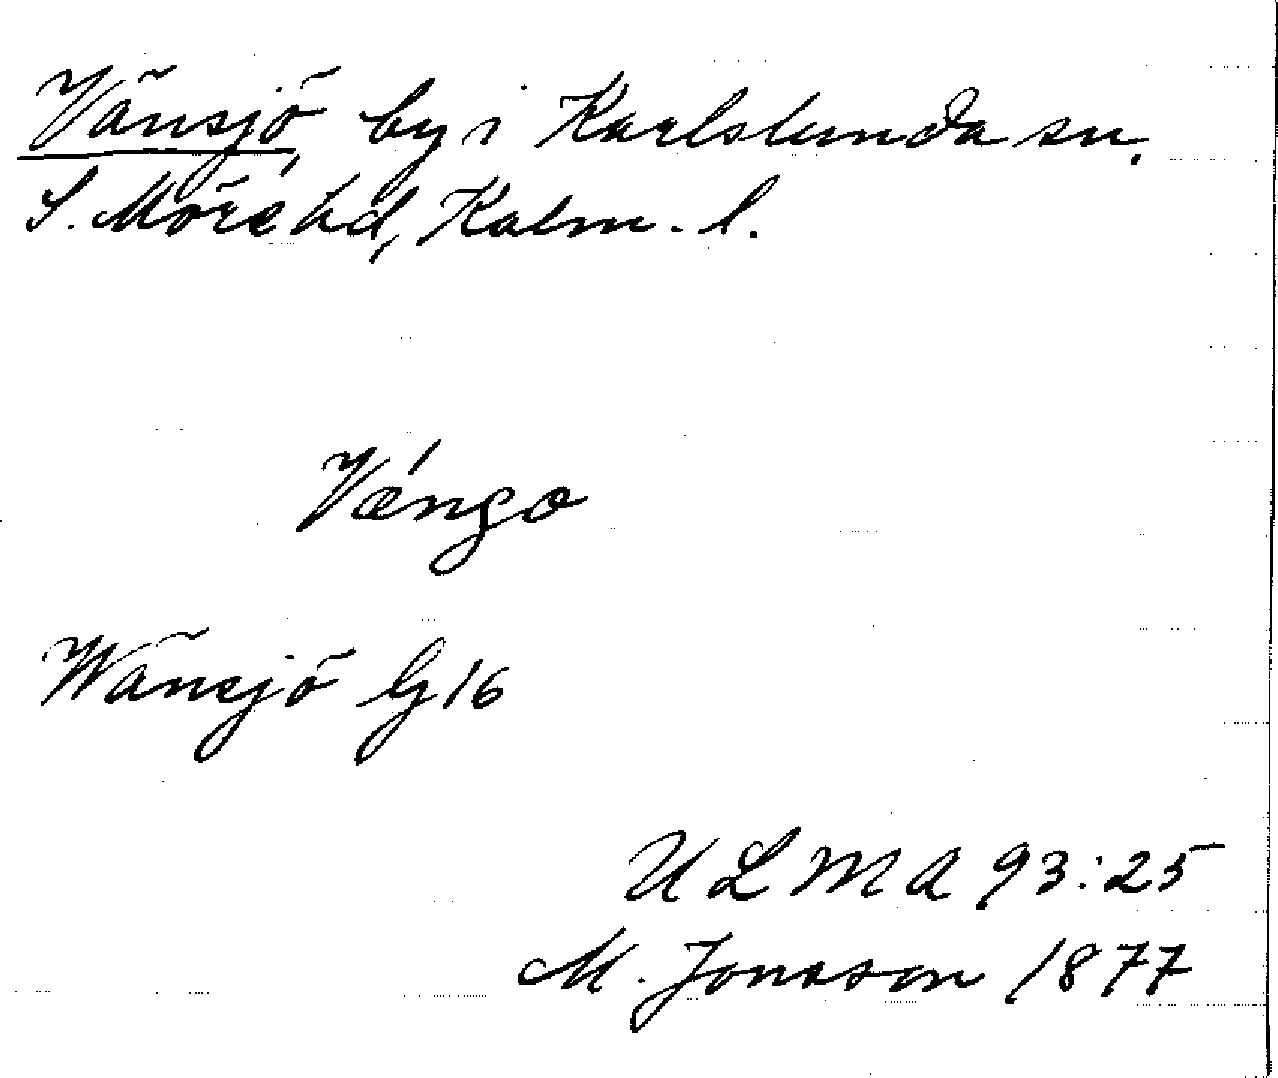 Vänsjö, by i Karlslunda sn,
S. Möre hd, Kalm. l.
Vængo
Wänsjö G 16
ULMA 93:25
M. Jonsson 1877